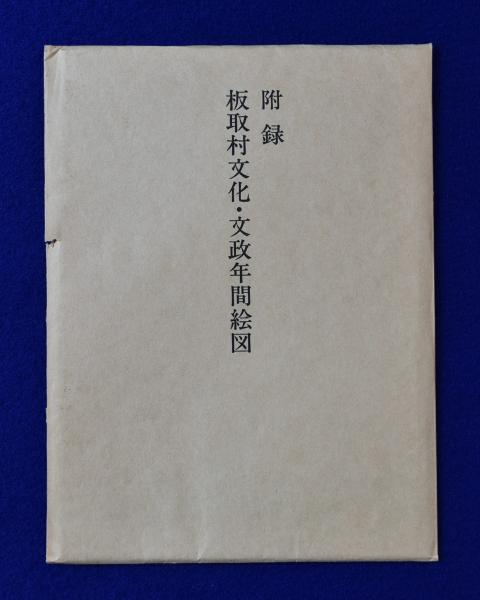 附録
板取村文化・文政年間絵図